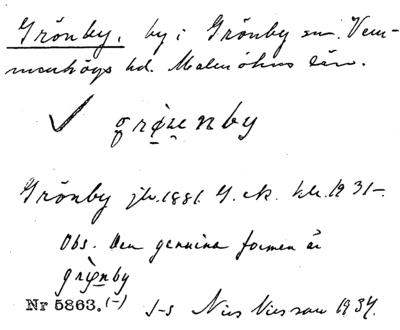 Grönby, by i Grönby sn. Vem-
menhögs hd. Malmöhus län.
Grönby jb. 1881. G. ek. kb. 1931-.
Obs. Den genuina formen är
Nr 5863. (-) J-s Nils Nilsson 1934.